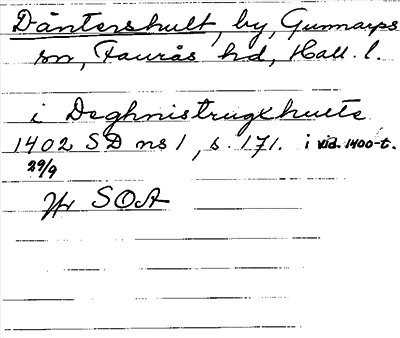 Däntershult, by, Gunnarps
sn, Faurås hd, Hall. l.
i Deghnistrugxhulte
1402 SD ns 1, s. 171. i vid. 1400-t.
29/9
Ur SOA